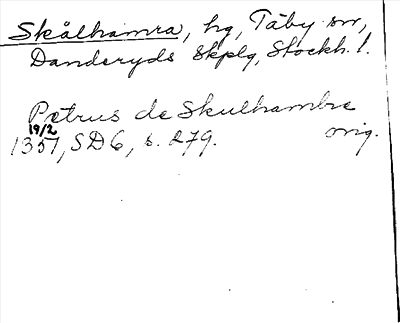 Skålhamra, hg, Täby sn,
Danderyds skplg, Stockh. l.
Petrus de Skulhambre
19/2
1357, SD 6, s. 279. orig.